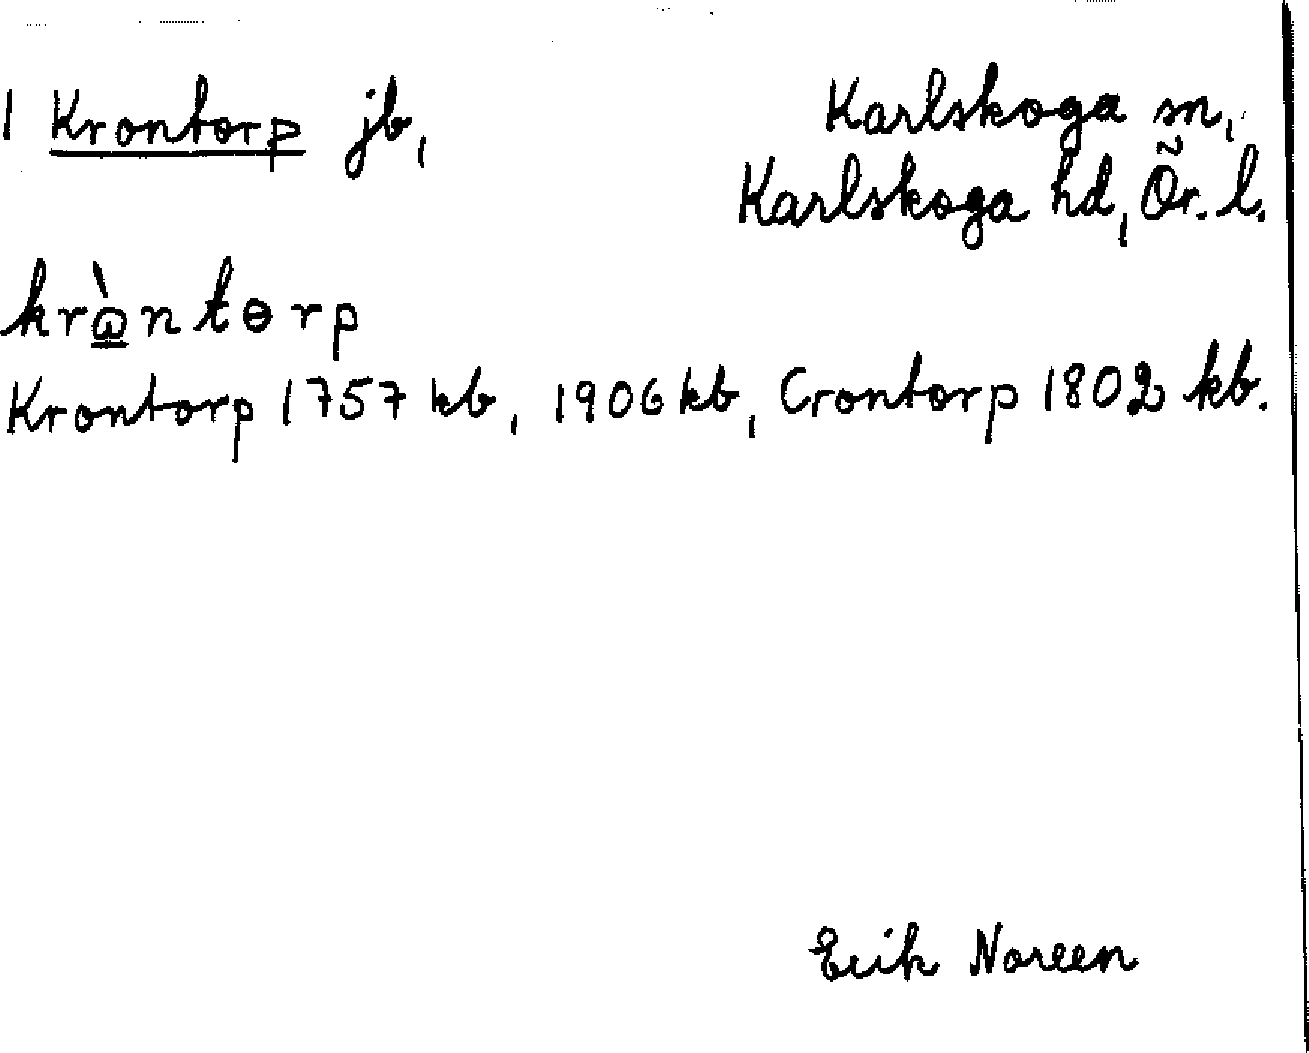 1 Krontorp jb,
Karlskoga sn,
Karlskoga hd, Ör. l.
krὼntɵrp
Krontorp 1757 kb, 1906 kb, Crontorp 1802 kb.
Erik Noreen